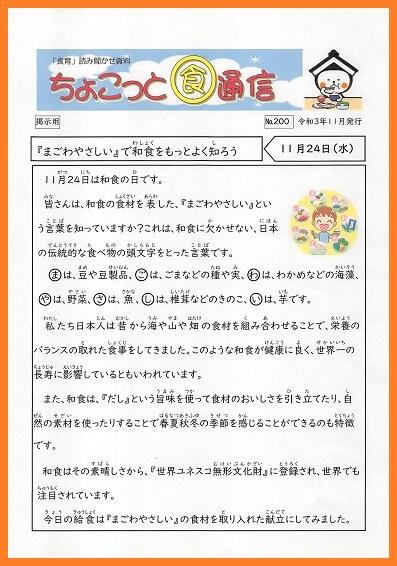 「食育」読み聞かせ資料
ちょこっと食通信
掲示用
№200 令和3年11月発行
『まごわやさしい』で和食をもっとよく知ろう
11月24日(水)
11月24日は和食の日です。
皆さんは、和食の食材を表した、『まごわやさしい』とい
う言葉を知っていますか?これは、和食に欠かせない、日本
の伝統的な食べ物の頭文字をとった言葉です。
まは、豆や豆製品、ごは、ごまなどの種や実、わは、わかめなどの海藻、
やは、野菜、さは、魚、しは、椎茸などのきのこ、いは、芋です。
私たち日本人は昔から海や山や畑の食材を組み合わせることで、栄養の
バランスの取れた食事をしてきました。このような和食が健康に良く、世界一の
長寿に影響しているともいわれています。
また、和食は、『だし』という旨味を使って食材のおいしさを引き立てたり、自
然の素材を使ったりすることで春夏秋冬の季節を感じることができるのも特徴
です。
和食はその素晴しさから、『世界ユネスコ無形文化財』に登録され、世界でも
注目されています。
今日の給食は『まごわやさしい』の食材を取り入れた献立にしてみました。